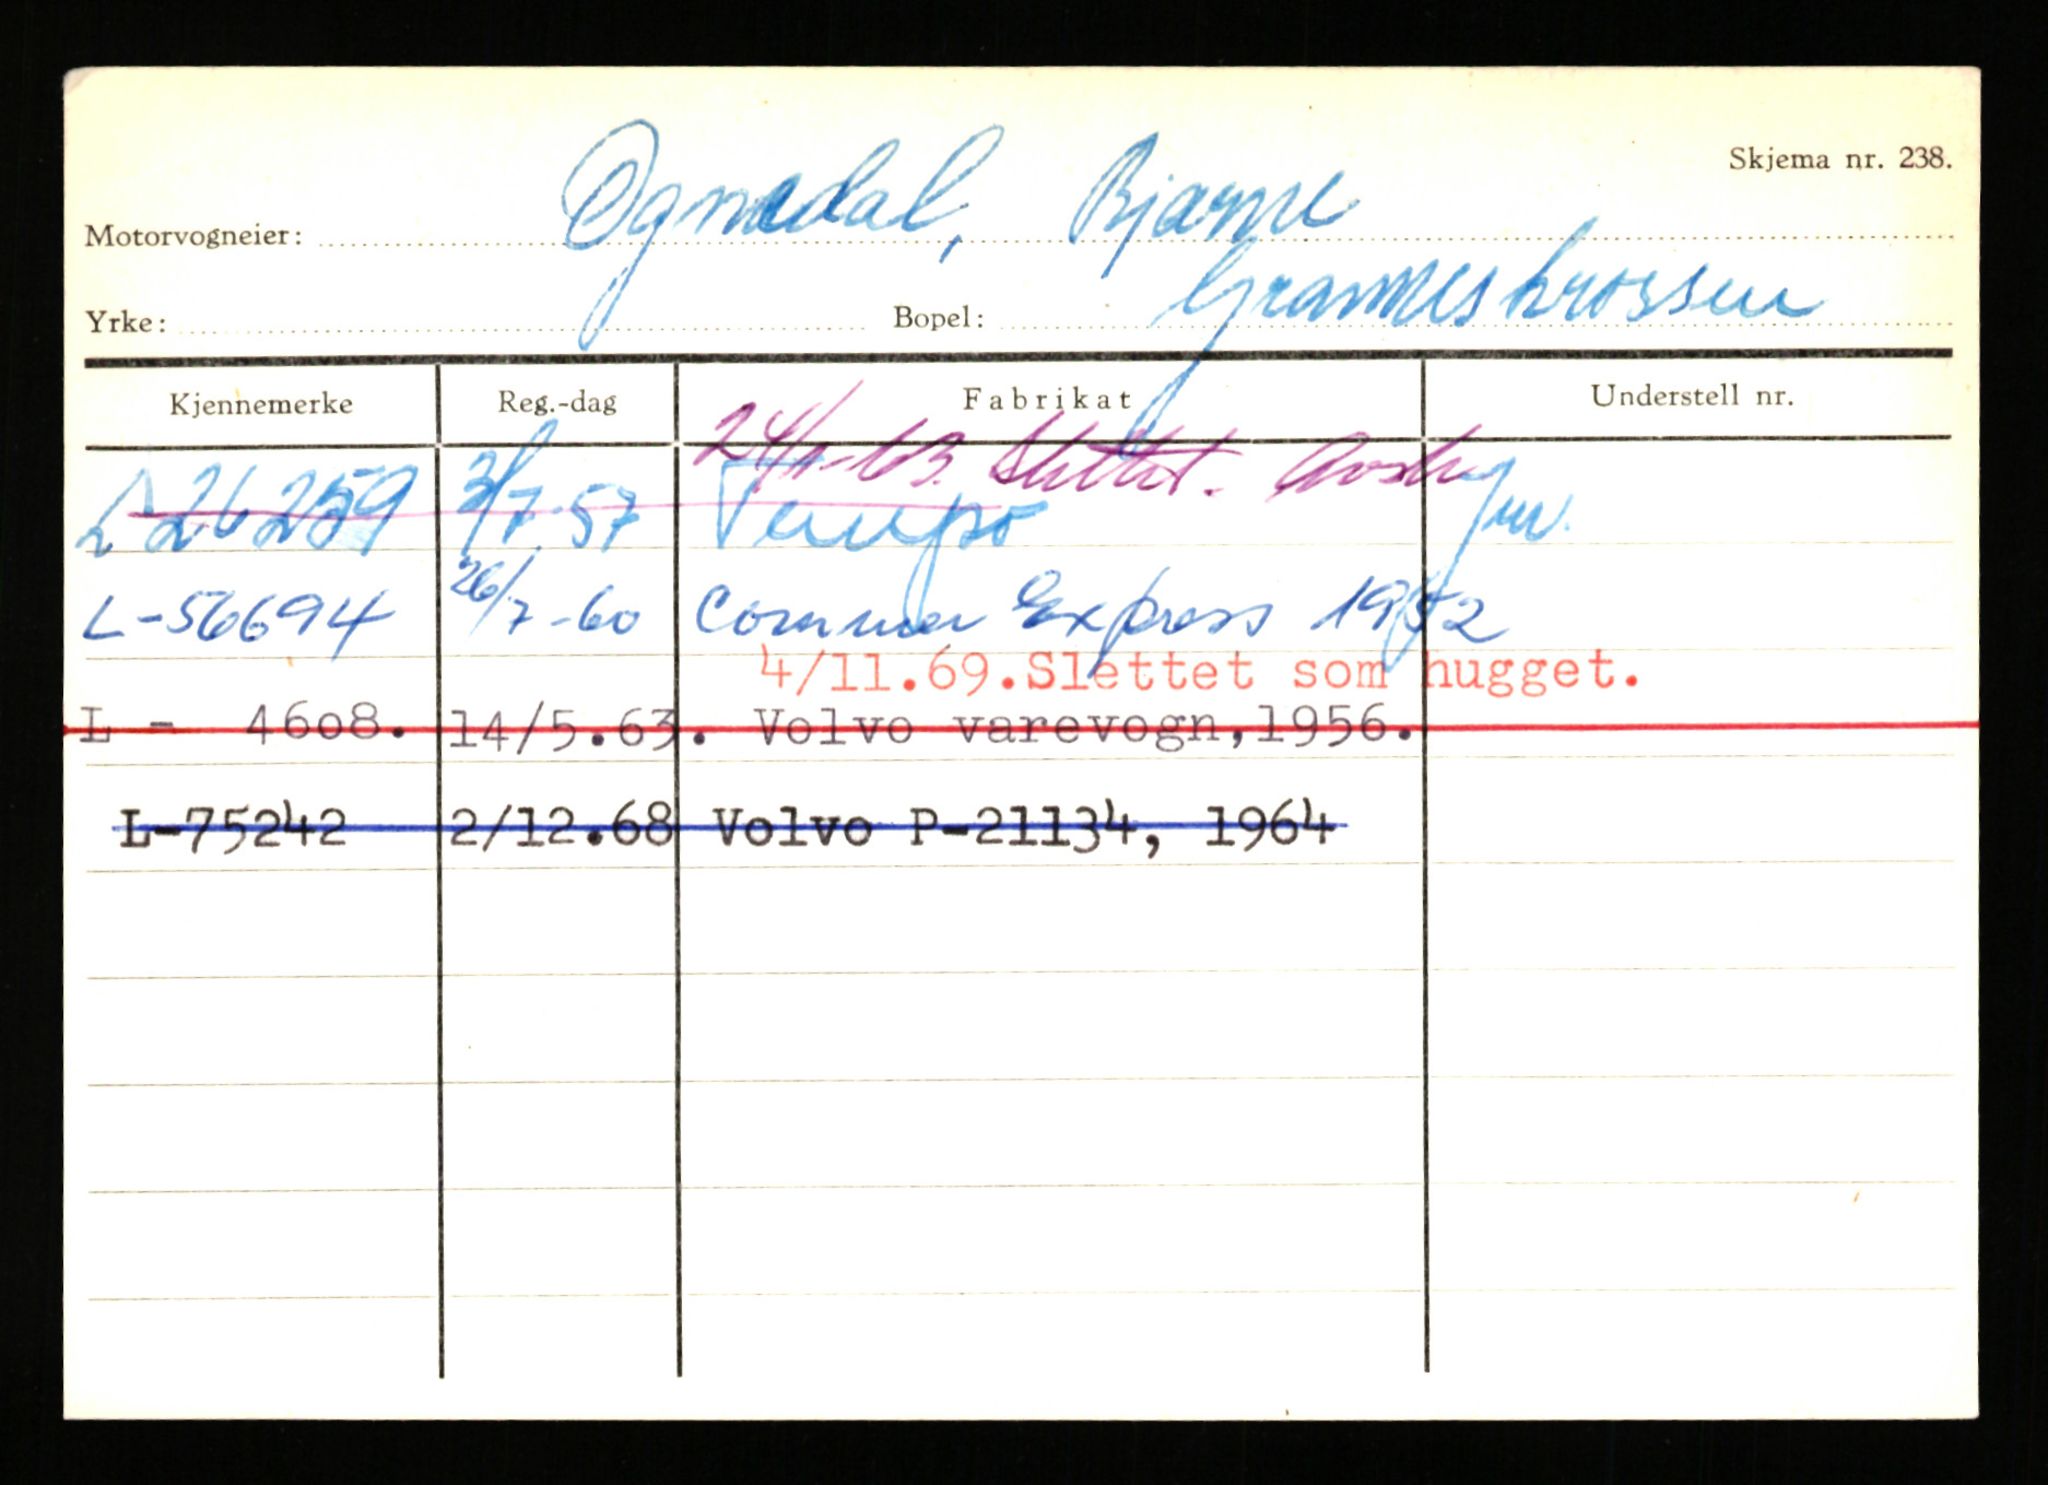 Skjema nr. 238.
Motorvogneier: Ognedal, Bjarne
Yrke: Bopel: Granneskrossen
Kjennemerke Reg.-dag Fabrikat Understell nr.
Slettet.
L 26259 3/7-57 Tempo
L-56694 26/7-60 Commer Express 1952
4/11.69.Slettet som hugget.
L - 4608. 14/5.63. Volvo varevogn,1956.
L-75242 2/12.68 Volvo P-21134, 1964